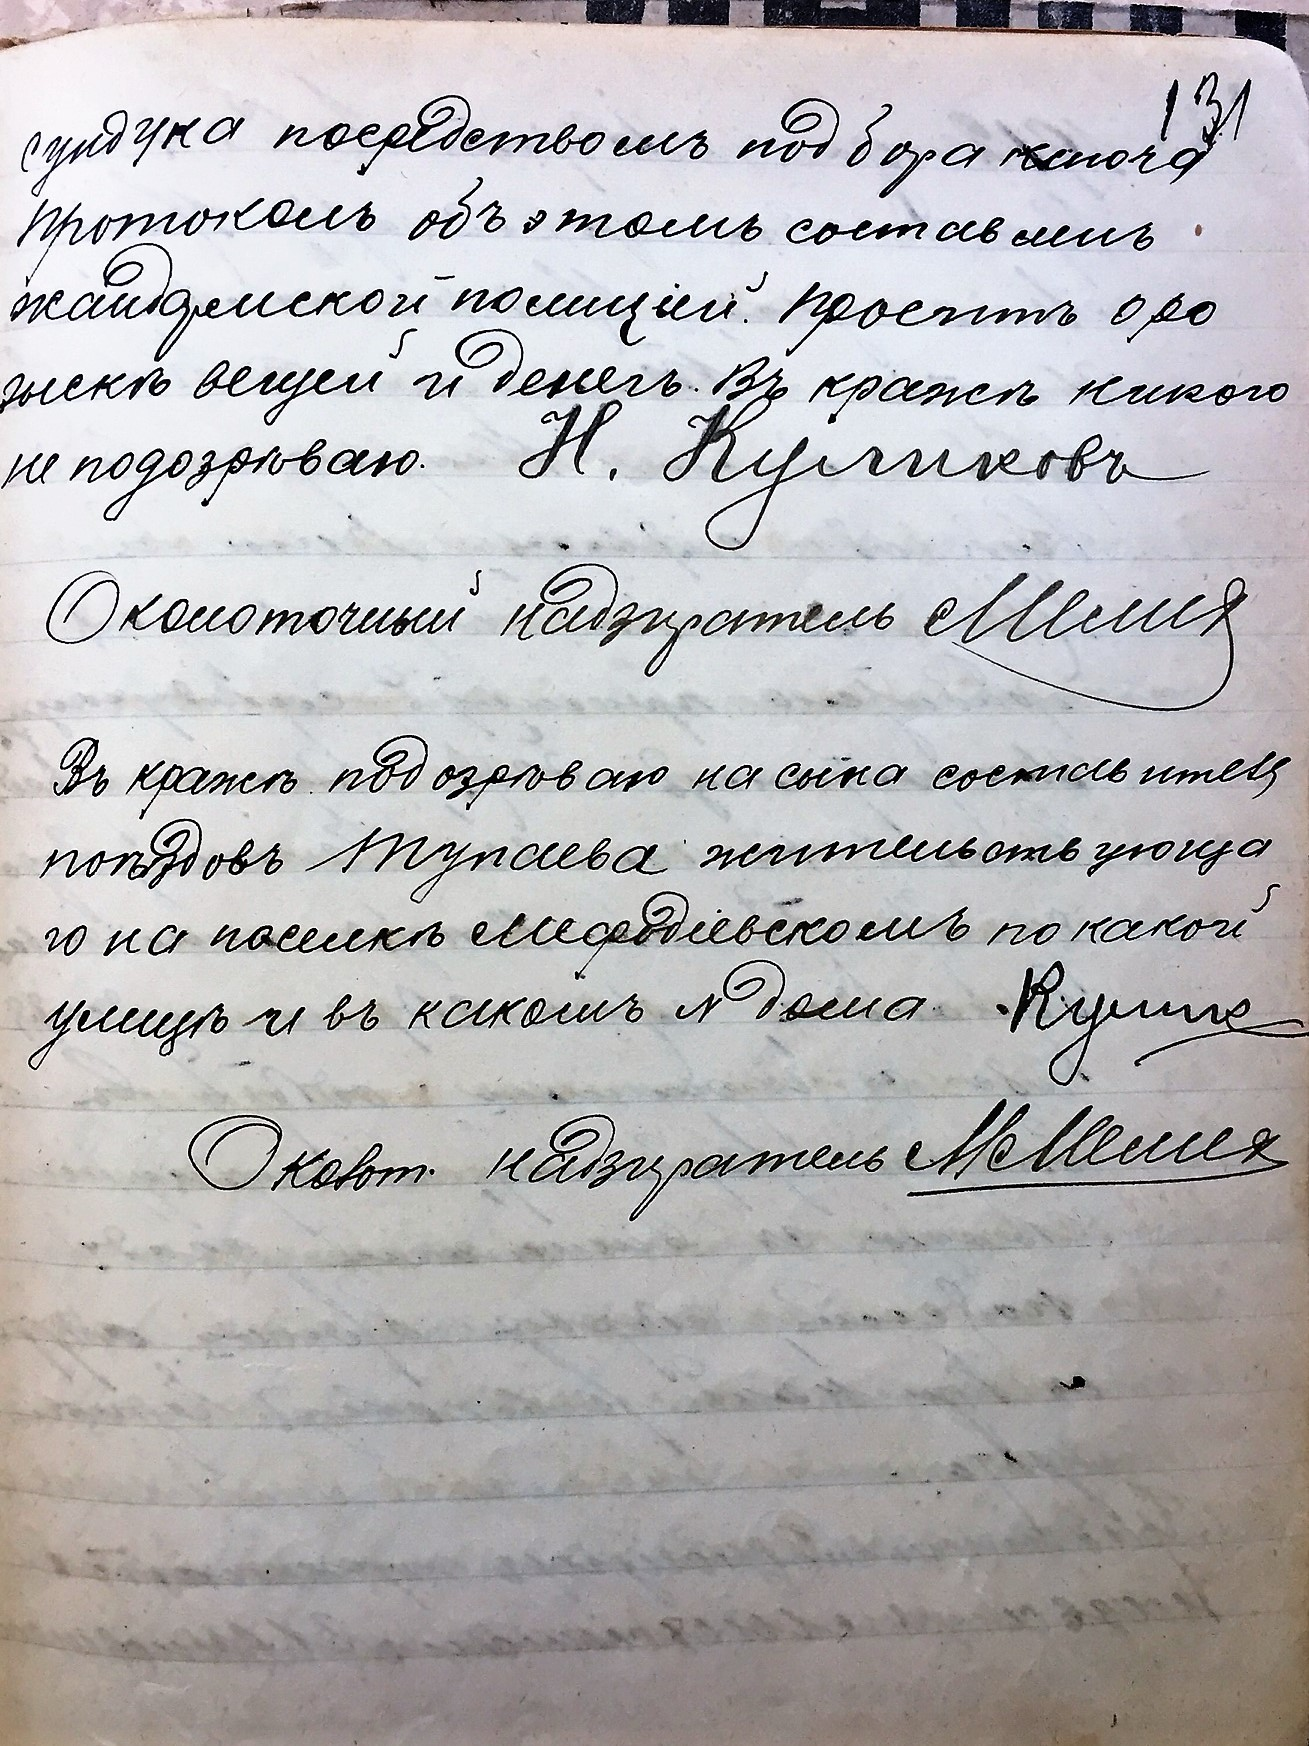 131
сундука посредствомъ подбора ключа
Протоколъ объ этомъ составленъ
жандармской полиціей. Проситъ о ро
зыскѣ вещей и денегъ. Въ кражѣ никого
не подозрѣваю. Н. Куликовъ
Околоточный надзиратель
Въ кражѣ подозрѣваю на сына составителя
поѣздовъ Тупаева жительствующа
го на поселкѣ Мефодіевскомъ по какой
улицѣ и въ какомъ № дома Кулик
Околот. надзиратель